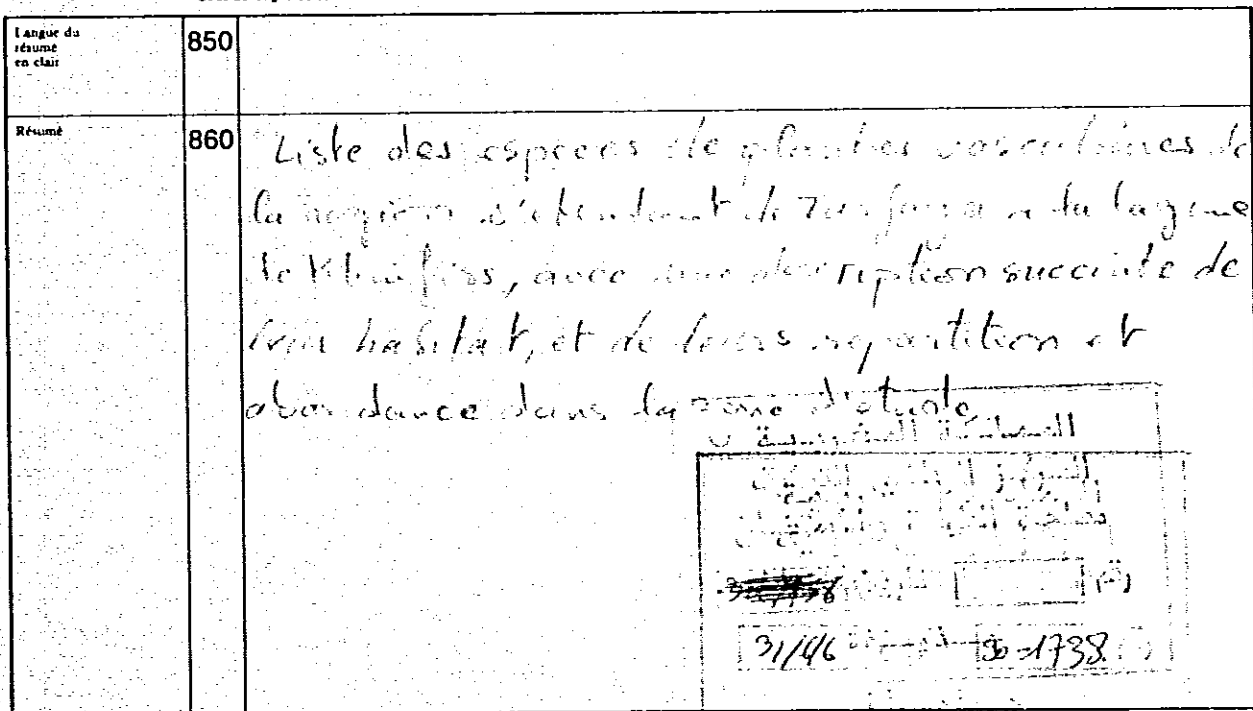 Langue du
résumé
en clair
850
Résumé
860
Liste des espèces de plantes vasculaires de
la région s'étendant de Tarfaya à la lagune
de Khnifiss, avec une description succinte de
leur habitat, et de leurs repartition et
abondance dans la zone d'étude
المملكة المغربية
المركز الوطني للتوثيق
31/46